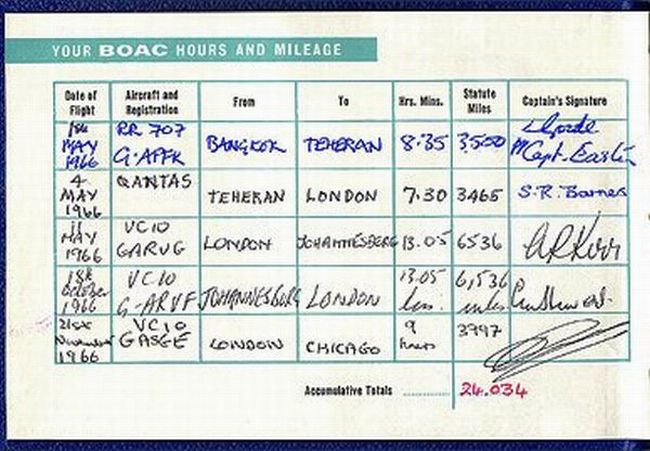 YOUR BOAC HOURS AND MILEAGE
Date of Flight Aircraft and Registration From To Hrs. Mins. Statute Miles Captain's Signature
1st MAY 1966 RR 707 G-APFK BANGKOK TEHERAN 8.35 3,500 Capt. Eastin
4 MAY 1966 QANTAS TEHERAN LONDON 7.30 3465 S.R. Barnes
11 MAY 1966 VC10 GARVG LONDON JOHANNESBERG 13.05 6536 A R Kerr
18th October 1966 VC10 G-ARVF JOHANNESBURG LONDON 13.05 hrs. 6,536 miles
21st November 1966 VC10 GASGE LONDON CHICAGO 9 hours 3997
Accumulative Totals .......... 24.034